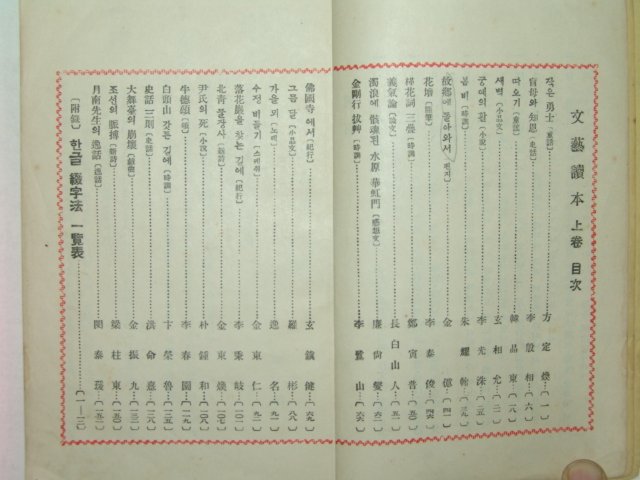 文藝讀本 上卷 目次
작은 勇士〔童話〕 方定煥〔一〕
盲母와 知恩〔史話〕 李殷相〔六〕
따오기〔童謠〕 韓晶東〔一八〕
새벽〔小品文〕 玄相允〔二一〕
궁예의 활〔小說〕 李光洙〔二五〕
봄비〔時調〕 朱耀翰〔三九〕
故鄕에 돌아와서〔편지〕 金億〔四一〕
花壇〔隨筆〕 李泰俊〔四六〕
梅花詞 三疊〔時調〕 鄭寅普〔五〇〕
義氣論〔論文〕 長白山人〔五一〕
濁浪에 餓魂된 水原 華虹門〔感想文〕 廉尙燮〔六一〕
金剛行 拔辨〔時調〕 李鷺山〔六六〕
佛國寺에서〔紀行〕 玄鎭健〔六九〕
그믐달〔小品文〕 羅彬〔八八〕
가을 뫼〔노래〕 逸名〔九一〕
수정 비둘기〔스케취〕 金東仁〔九二〕
落花巖을 찾는 길에〔紀行〕 李秉岐〔一〇一〕
北靑 물장사〔新詩〕 金東煥〔一〇七〕
尹氏의 死〔小說〕 朴鍾和〔一〇八〕
牛德頌〔頌〕 李春園〔一二九〕
白頭山 갔든 길에〔時調〕 卞榮魯〔一三五〕
史話 三則〔史話〕 洪命憙〔一三八〕
大舞臺의 崩壞〔戱曲〕 金振九〔一四二〕
조선의 脈搏〔新詩〕 梁柱東〔一五〇〕
月南先生의 逸話〔逸話〕 閔泰瑗〔一五二〕
〔附錄〕 한글 綴字法 一覽表〔一-一二〕